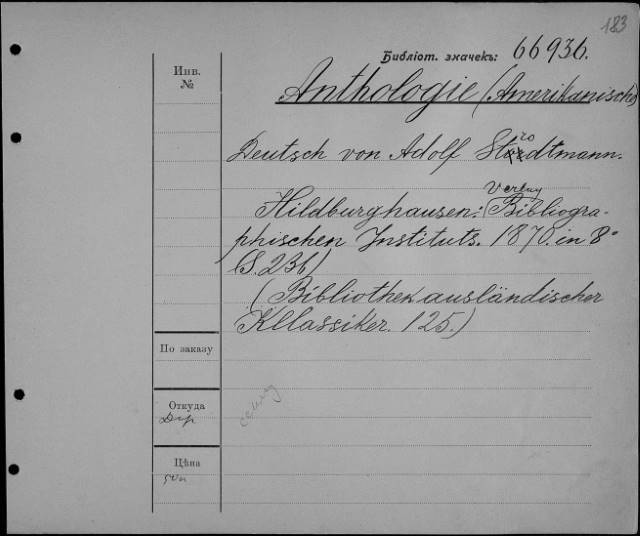 183
Библіот. значекъ: 66936.
Инв.
№
Anthologie (Amerikanische)
Deutsch von Adolf Strodtmann.
Verlag
Hildburghausen: Bibliogra-
phischen Instituts. 1870. in 8°
(S. 236)
(Bibliothek ausländischer
Kllassiker. 125.)
По заказу
Откуда
Цѣна